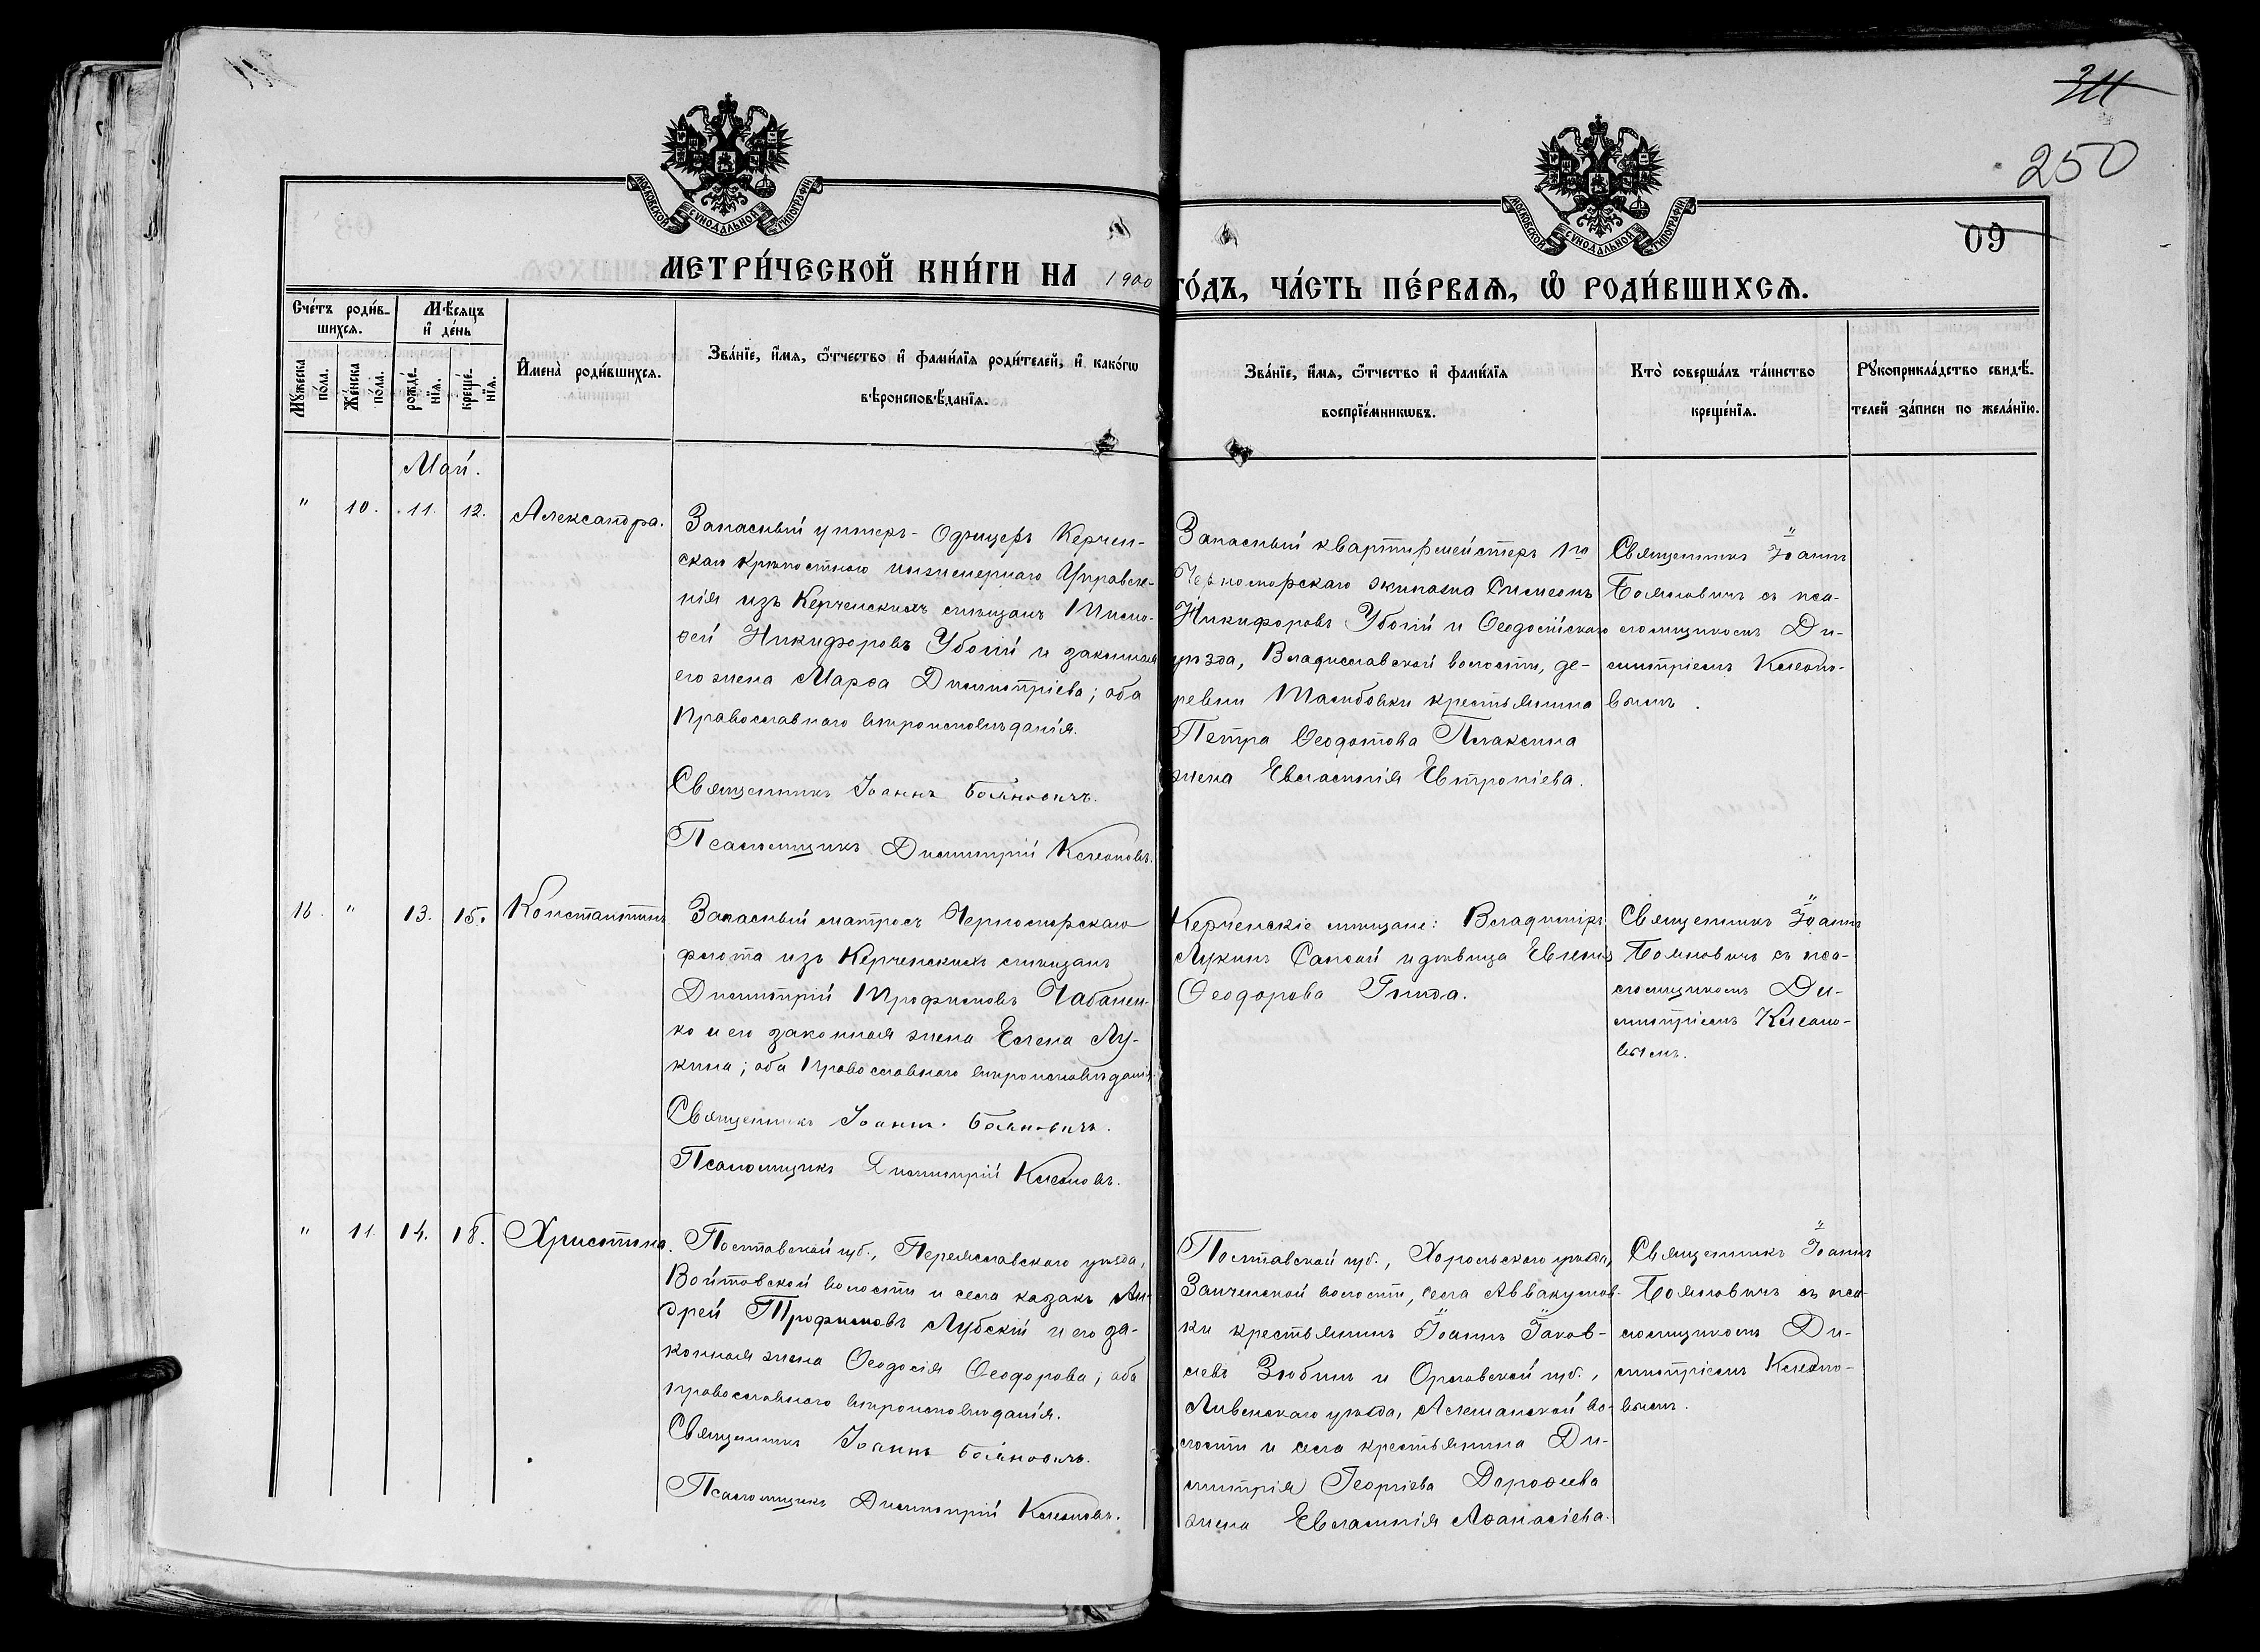 311
250
09
МОСКОВСКОЙ СѴНОДАЛЬНОЙ ТИПОГРАФІИ
МОСКОВСКОЙ СѴНОДАЛЬНОЙ ТИПОГРАФІИ
МЕТРИ́ЧЕСКОЙ КНИ́ГИ НА 1900 ГО́ДЪ, ЧА́СТЬ ПЕ́РВАѦ, Ѡ҆ РОДИ́ВШИХСѦ.
Сче́тъ роди́в-
шихсѧ.
Мѣ́сѧцъ
и҆ де́нь
Мꙋ́жеска
по́ла.
Же́нска
по́ла.
рожде́-
нїѧ.
креще́-
нїѧ.
И҆мена̀ роди́вшихсѧ.
Зва́нїе, и҆́мѧ, ѻ҆́тчество и҆ фами́лїѧ роди́телей, и҆ како́гѡ
вѣроисповѣ́данїѧ.
Зва́нїе, и҆́мѧ, ѻ҆́тчество и҆ фами́лїѧ
воспрїе́мникѡвъ.
Кто̀ соверша́лъ та́инство
креще́нїѧ.
Рꙋкоприкла́дство свидѣ́-
телей за́писи по жела́нїю.
Май.
" 10. 11. 12. Александра.
Запасный унтеръ-Офицеръ Керчен-
скаго Крѣпостного инженернаго Управле-
нія изъ Керченскихъ мѣщанъ Тимо-
ѳей Никифоровъ Убогій и законная
его жена Марѳа Димитріева; оба
Православнаго вѣроисповѣданія.
Священникъ Іоаннъ Бояновичъ.
Псаломщикъ Димитрій Клеоповъ.
Запасный квартирмейстеръ 1го
Черноморскаго экипажа Симеонъ
Никифоровъ Убогій и Ѳеодосійскаго
уѣзда, Владиславской волости, де-
ревни крестьянина
Петра Ѳеодотова Плаксина
жена Евлампія Евтропіева.
Священникъ Іоаннъ
Бояновичъ съ пса-
ломщикомъ Ди-
митріемъ Клеопо-
вымъ.
16. " 13. 15. Константинъ
Запасный матросъ Черноморскаго
флота изъ Керченскихъ мѣщанъ
Димитрій Трофимовъ Чабанен-
ко и его законная жена Елена Лу-
кина; оба Православнаго вѣроисповѣданія.
Священникъ Іоаннъ Бояновичъ.
Псаломщикъ Димитрій Клеоповъ.
Керченскіе мѣщане: Владиміръ
Лукинъ и дѣвица Евгенія
Ѳеодорова
Священникъ Іоаннъ
Бояновичъ съ пса-
ломщикомъ Ди-
митріемъ Клеопо-
вымъ.
" 11. 14. 18. Христина.
Полтавской губ., Переяславскаго уѣзда,
Войтовской волости и села казакъ Ан-
дрей Трофимовъ Лубскій и его за-
конная жена Ѳеодосія Ѳеодорова; оба
православнаго вѣроисповѣданія.
Священникъ Іоаннъ Бояновичъ.
Псаломщикъ Димитрій Клеоповъ.
Полтавской губ., Хорольскаго уѣзда,
Заиченской волости, села Аввакумов-
ки крестьянинъ Іоаннъ Іаков-
левъ Зюбинъ и Орловской губ.,
Ливенскаго уѣзда, во-
лости и села крестьянина Ди-
митрія Георгіева Дороѳеева
жена Евлампія Аѳанасіева.
Священникъ Іоаннъ
Бояновичъ съ пса-
ломщикомъ Ди-
митріемъ Клеопо-
вымъ.